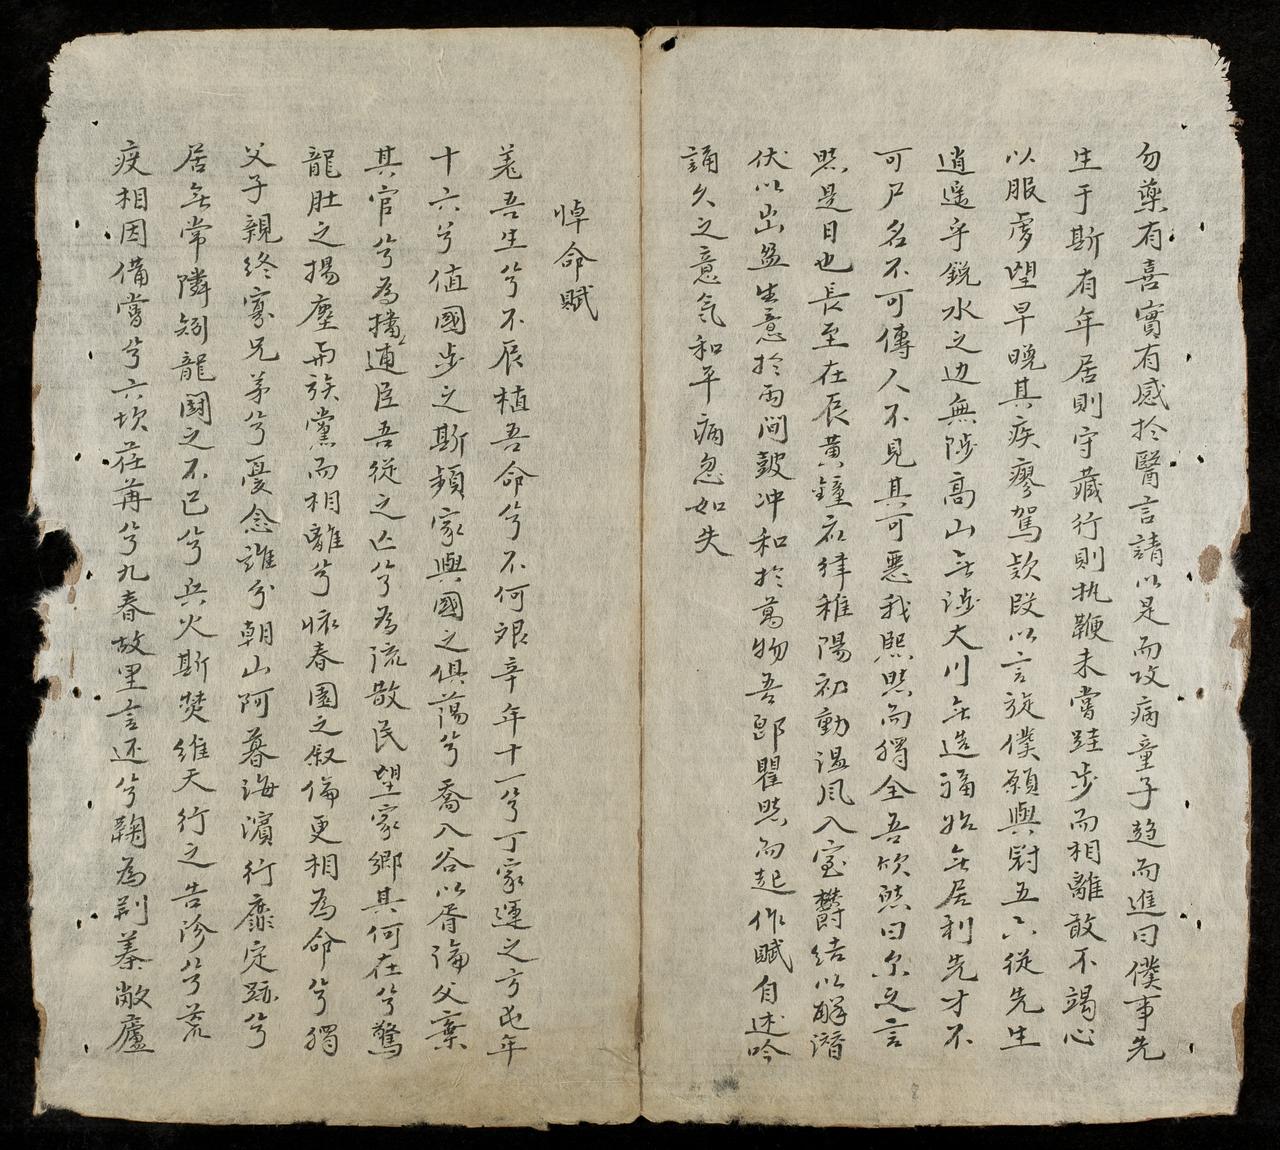 勿藥有喜實有感於醫言請以是而攻病童子趋而進曰僕事先
生于斯有年居則守藏行則执鞭未嘗跬步而相離敢不竭心
以服虔望早晚其疾瘳駕欵段以言旋僕願與尉五六從先生
逍遥乎銳水之边無陟高山无涉大川无造禍始无居利先才不
可尸名不可傳人不見其可惡我熙熙而獨全吾欣然曰尔之言
然是日也長至在辰黃鐘在律稚陽初動温风入室欝结以解潛
伏以出盎生意於两间鼓冲和於萬物吾即瞿然而起作賦自述吟
誦久之意気和平病忽如失
悼命賦
羌吾生兮不辰植吾命兮不何艰辛年十一兮丁家運之方屯年
十六兮值國步之斯頻家與國之俱荡兮喬入谷以胥淪父棄
其官兮為播逋臣吾從之亡兮為流散民望家鄉其何在兮驚
龍肚之揚塵吊族黨而相離兮怀春園之叙倫更相為命兮獨
父子親终寡兄弟兮憂念誰分朝山阿暮海濱行靡定跡兮
居无常隣矧龍鬪之不已兮兵火斯焚維天行之告沴兮荒
疫相因備嘗兮六坎荏苒兮九春故里言还兮鞠為荆蓁敝廬